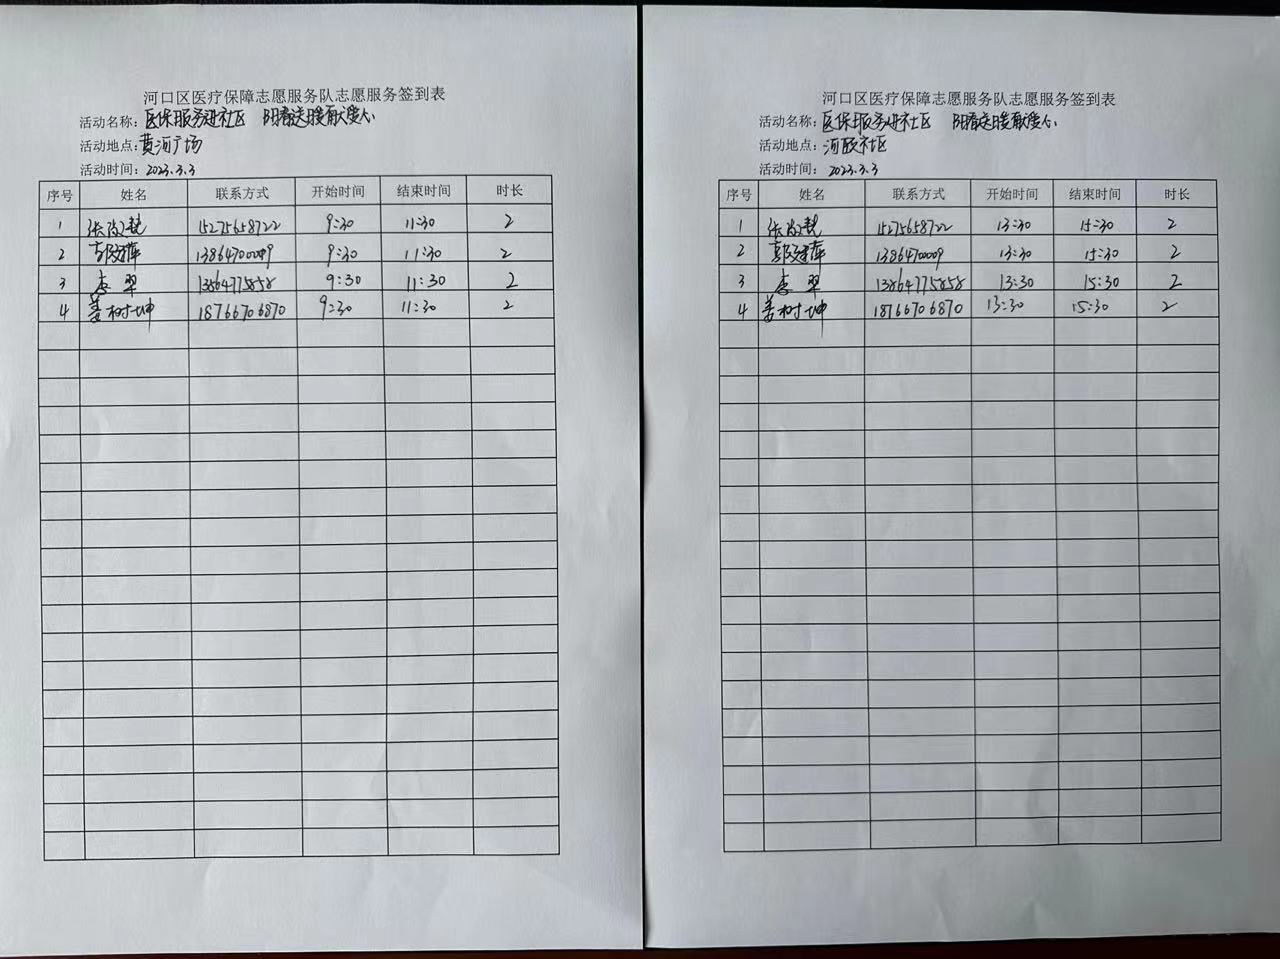 河口区医疗保障志愿服务队志愿服务签到表
活动名称：医保服务进社区 阳春送暖献爱心
活动地点：黄河广场
活动时间：2023.3.3
序号 姓名 联系方式 开始时间 结束时间 时长
1 15275658722 9:30 11:30 2
2 13864700009 9:30 11:30 2
3 李翠 13864775858 9:30 11:30 2
4 姜树坤 18766706870 9:30 11:30 2
河口区医疗保障志愿服务队志愿服务签到表
活动名称：医保服务进社区 阳春送暖献爱心
活动地点：河殷社区
活动时间：2023.3.3
序号 姓名 联系方式 开始时间 结束时间 时长
1 15275658722 13:30 15:30 2
2 13:30 15:30 2
3 李翠 13864775858 13:30 15:30 2
4 姜树坤 18766706870 13:30 15:30 2